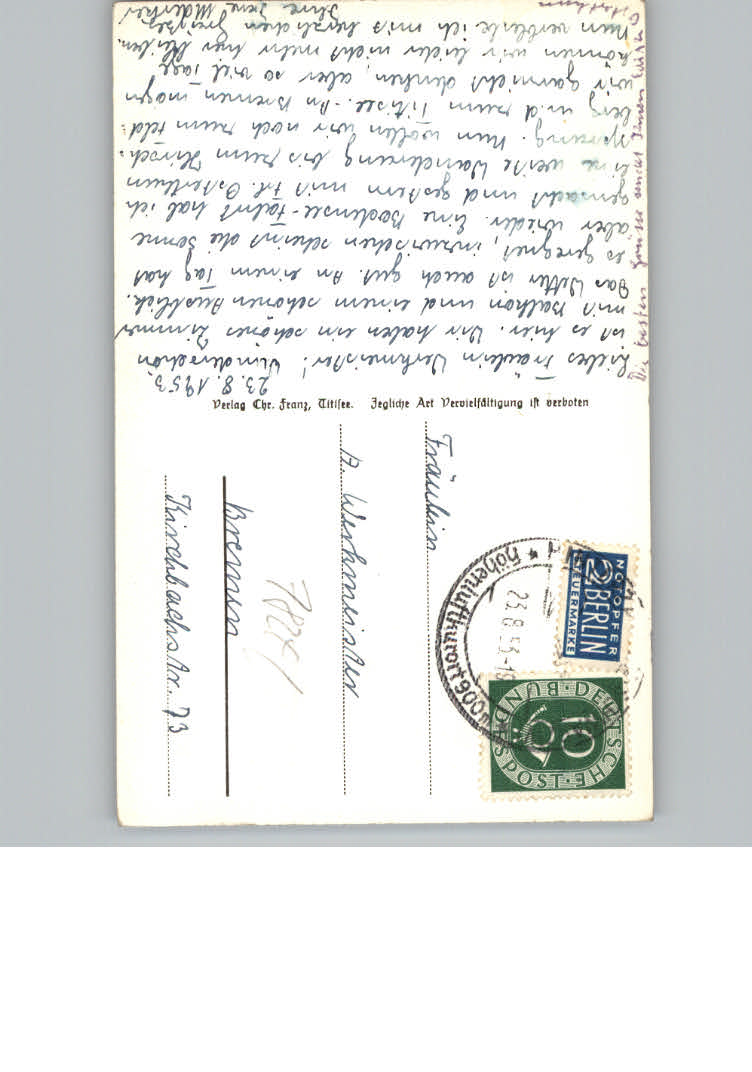 23.8.1953.
Liebes Fräulein Werkmeister! Wunderschön
ist es hier. Wir haben ein schönes Zimmer
mit Balkon und einem schönen Ausblick.
Das Wetter ist auch gut. An einem Tag hat
es geregnet, inzwischen scheint die Sonne
aber wieder. Eine Bodensee-Fahrt hab ich
gemacht und gestern mit Frl. Osterthun
eine weite Wanderung bis zum Hirsch-
sprung. Nun wollen wir noch zum Feld-
berg u.d zum Titisee. An Bremen mögen
wir garnicht denken, aber so viel Tage
können wir leider nicht mehr hier bleiben.
Nun verbleibe ich mit herzlichen Grüßen
Ihre
Die besten Grüße sendet Ihnen
Osterthun
Verlag Chr. Franz, Titisee. Jegliche Art Vervielfältigung ist verboten
Fräulein
A. Werkmeister
Bremen
Kirchbachstr. 73
NOTOPFER
2 BERLIN
STEUERMARKE
DEUTSCHE BUNDESPOST
10
Höhenluftkurort 900m
23.8.53.-18